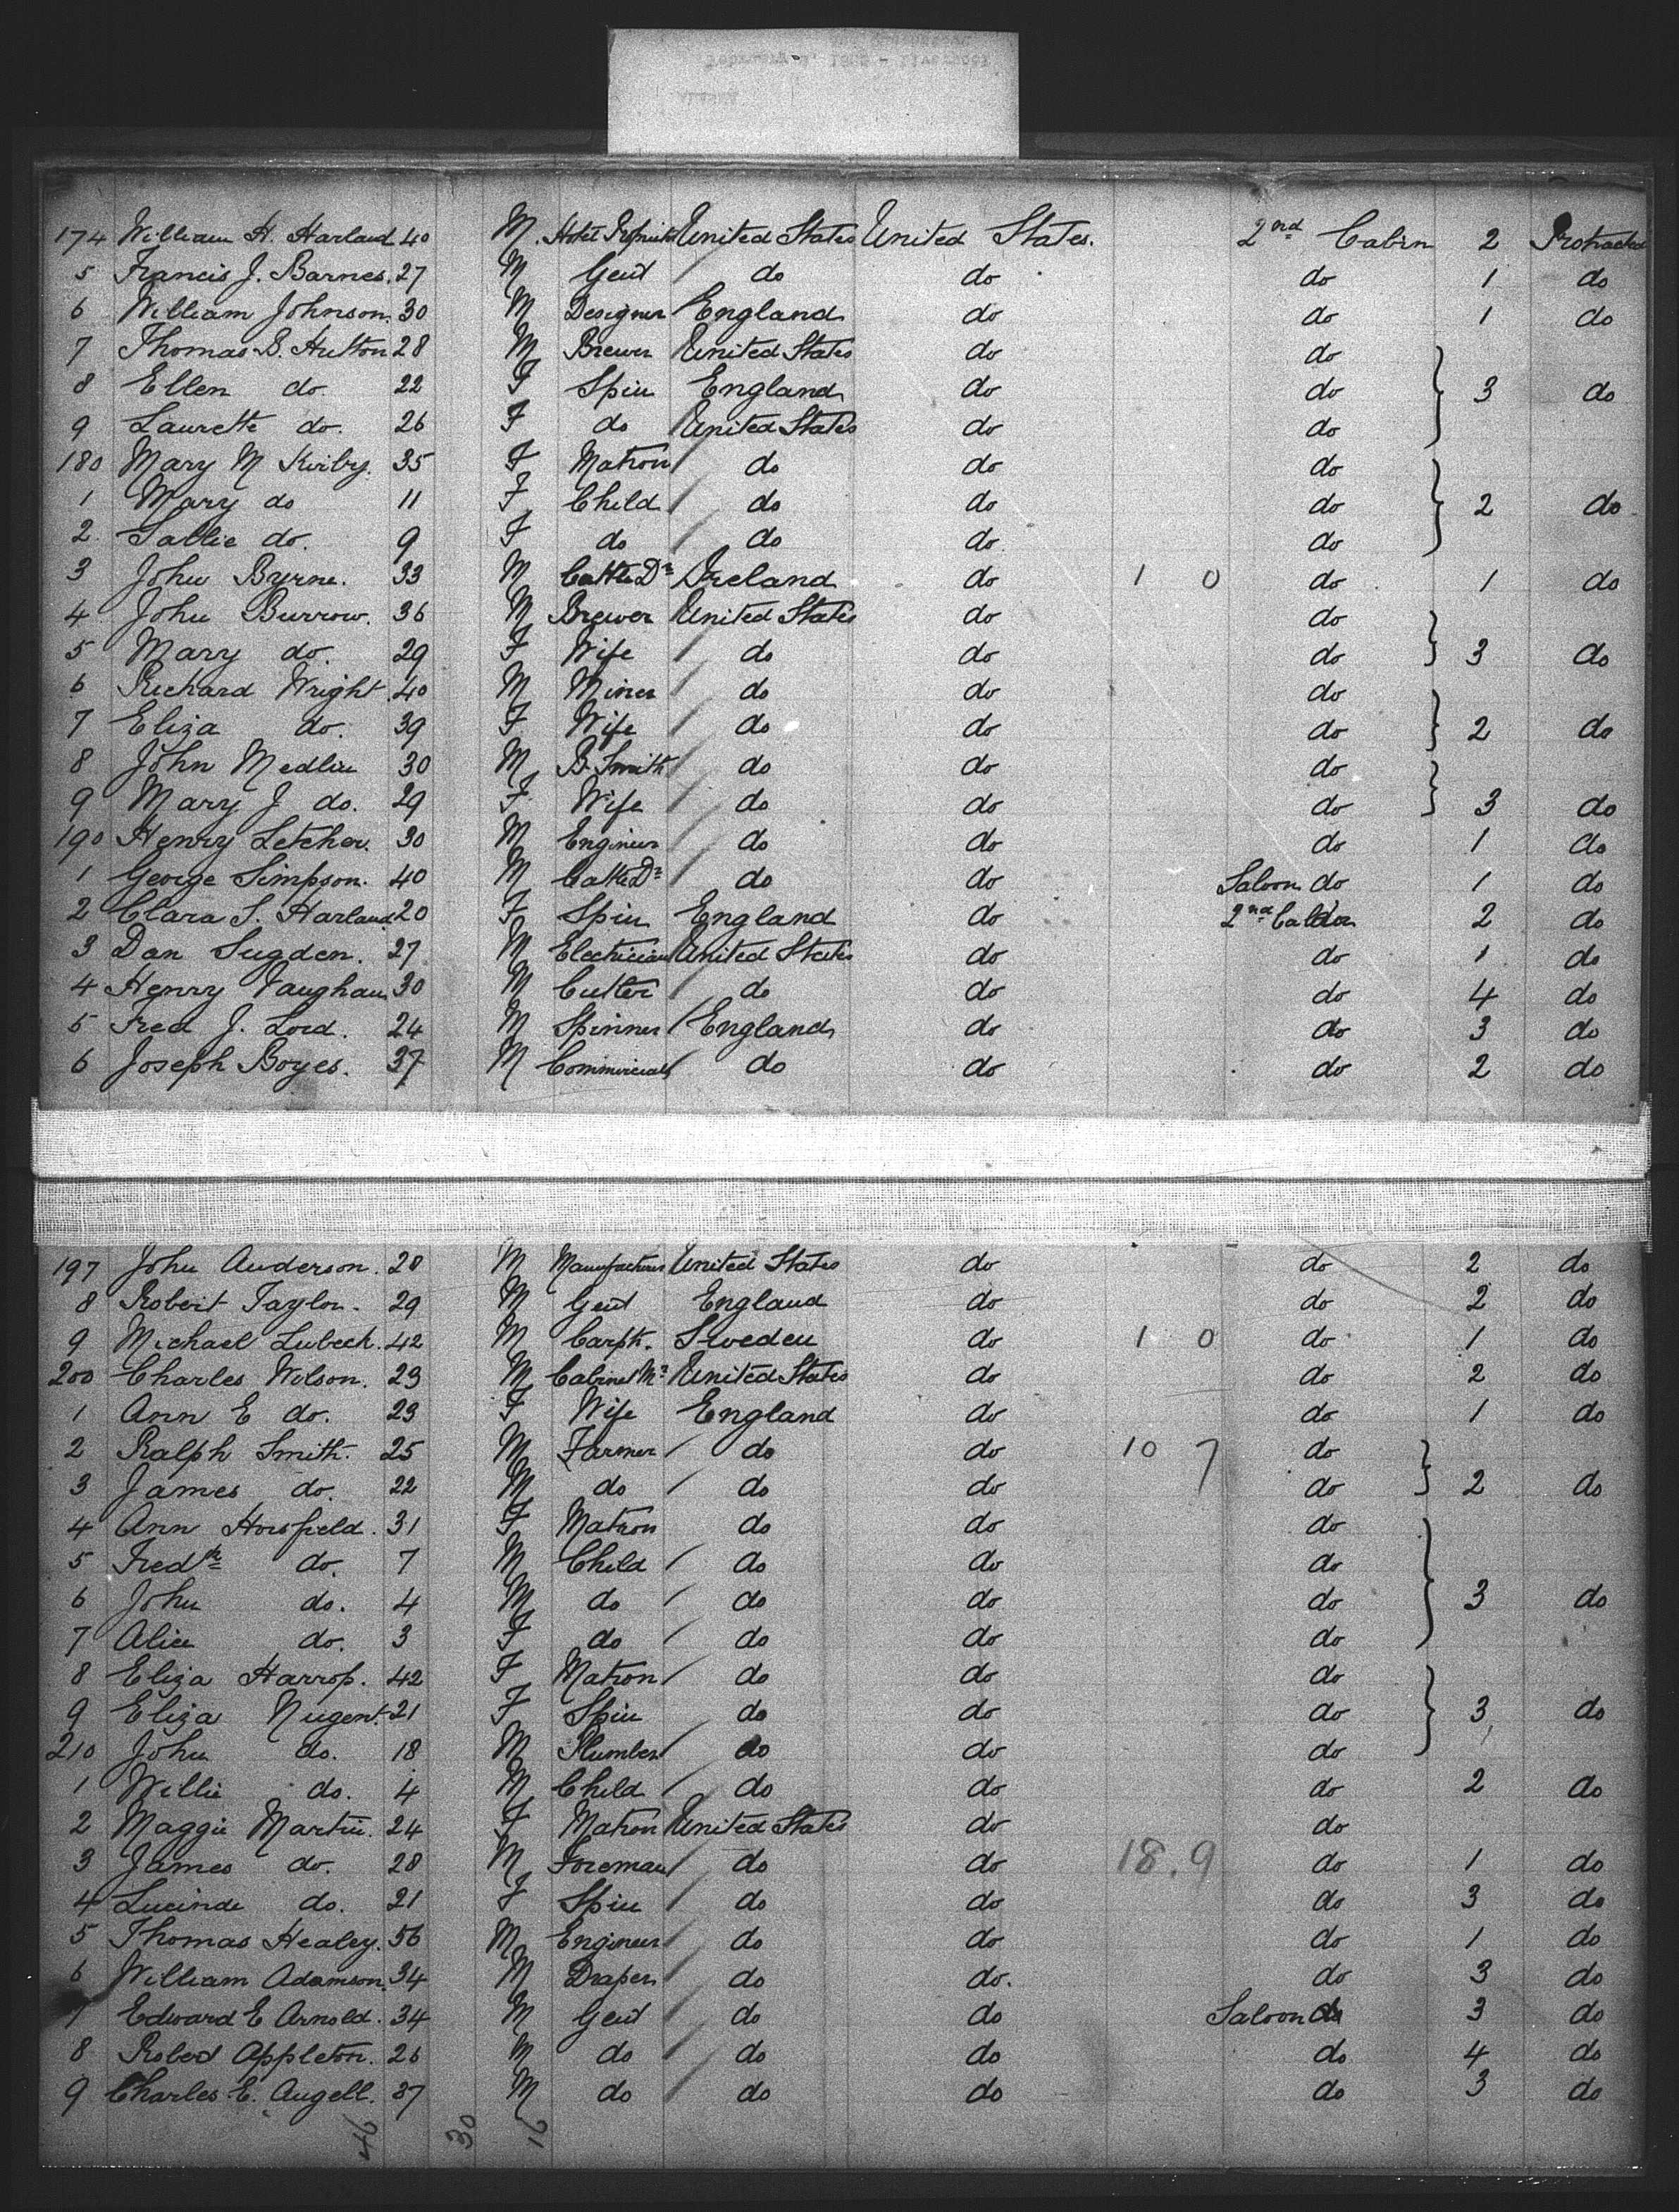 174 William H. Harland 40 M Hotel United States United States. 2nd Cabin 2 Protracted
5 Francis J. Barnes. 27 M Gent do do do 1 do
6 William Johnson. 30 M Designer England do do 1 do
7 Thomas S. Hulton 28 M Brewer United States do do
8 Ellen do. 22 F Spin England do do 3 do
9 Laurette do. 26 F do United States do do
180 Mary M Kirby. 35 F Matron do do do
1 Mary do 11 F Child do do do 2 do
2 Sallie do. 9 F do do do do
3 John Byrne. 33 M Cattle Dr Ireland do 1 0 do 1 do
4 John Burrow. 36 M Brewer United States do do
5 Mary do. 29 F Wife do do do 3 do
6 Richard Wright 40 M Miner do do do
7 Eliza do. 39 F Wife do do do 2 do
8 John Medlin 30 M B. Smith do do do
9 Mary J do. 29 F Wife do do do 3 do
190 Henry Letcher. 30 M Engineer do do do 1 do
1 George Simpson. 40 M Cattle Dr do do Saloon do 1 do
2 Clara S. Harland 20 F Spin England do 2nd Cabin 2 do
3 Dan Sugden. 27 M Electrician United States do do 1 do
4 Henry Vaughan 30 M Cutler do do do 4 do
5 Fred J. Lord. 24 M Spinner England do do 3 do
6 Joseph Boyes. 37 M Commercial do do do 2 do
197 John Anderson. 28 M Manufacturer United States do do 2 do
8 Robert Taylor. 29 M Gent England do do 2 do
9 Michael Lubeck. 42 M Carptr. Sweden do 1 0 do 1 do
200 Charles Wilson. 23 M Cabinet Mr United States do do 2 do
1 Ann E do. 23 F Wife England do do 1 do
2 Ralph Smith. 25 M Farmer do do 10 7 do
3 James do. 22 M do do do do 2 do
4 Ann Horsfield. 31 F Matron do do do
5 Fredk do. 7 M Child do do do
6 John do. 4 M do do do do 3 do
7 Alice do. 3 F do do do do
8 Eliza Harrop. 42 F Matron do do do
9 Eliza Nugent. 21 F Spin do do do 3 do
210 John do. 18 M Plumber do do do
1 Willie do. 4 M Child do do do 2 do
2 Maggie Martin. 24 F Matron United States do do
3 James do. 28 M Foreman do do 18.9 do 1 do
4 Lucinda do. 21 F Spin do do do 3 do
5 Thomas Healey. 56 M Engineer do do do 1 do
6 William Adamson. 34 M Draper do do. do 3 do
7 Edward E Arnold. 34 M Gent do do Saloon do 3 do
8 Robert Appleton. 26 M do do do do 4 do
9 Charles E. Angell. 37 M do do do do 3 do
46 30 16